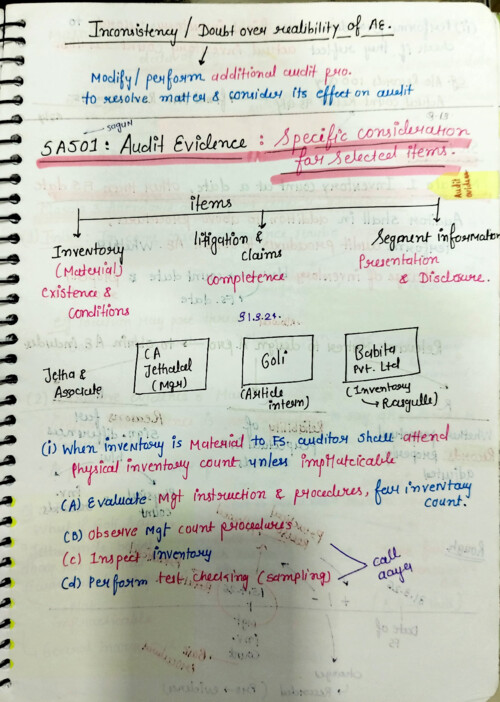 Inconsistency / Doubt over realibility of AE.
Modify / perform additional audit pro.
to resolve matter & consider its effect on audit
sagun
SA501: Audit Evidence: Specific consideration
for selected items.
Audit
items
Inventory
(Material)
Existence &
Conditions
litigation &
claims
completence
31.3.24.
Segment information
Presentation
& Disclosure.
Jetha &
Associate
CA
Jethalal
(Mgr)
Goli
(Article
intern)
Babita
Pvt. Ltd
(Inventory
→ Rasgulle)
(i) When inventory is Material to FS. auditor shall attend
Physical inventory count unless impraticable
(A) Evaluate Mgt instruction & procedures, for inventory
count.
(b) Observe Mgt count procedures
(c) Inspect inventory
(d) Perform test checking (sampling)
call
aayega